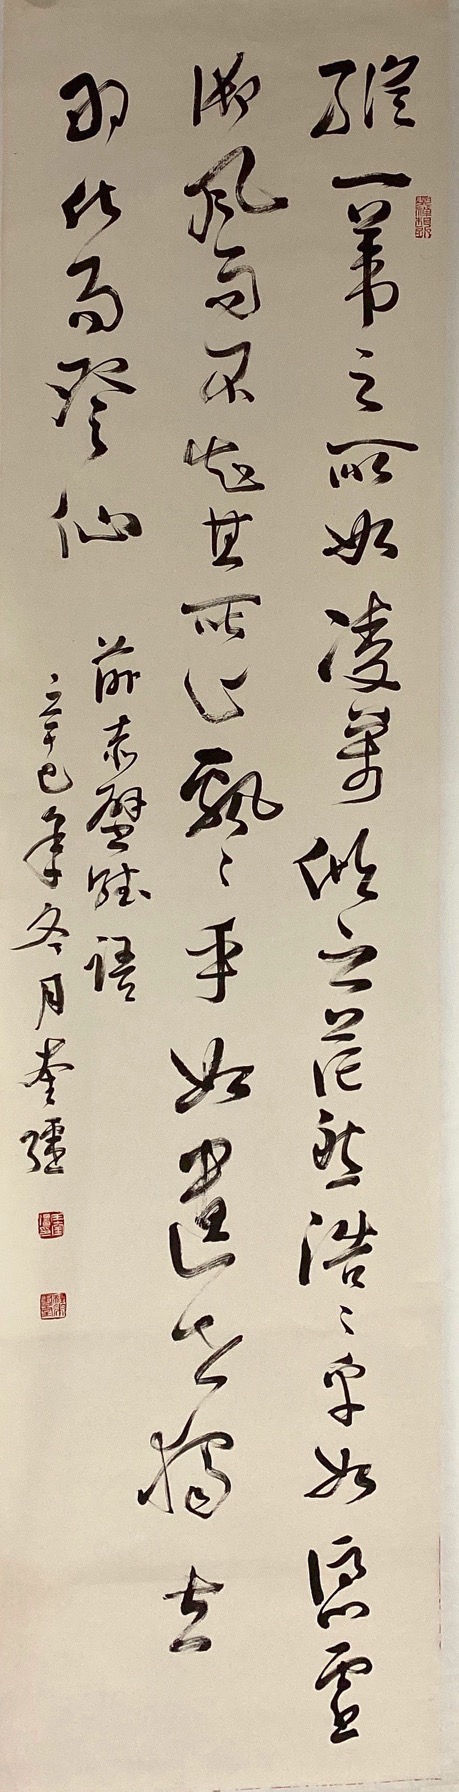 縱一葦之所如凌萬頃之茫然浩〻乎如憑虛
御風而不知其所止飄〻乎如遺世獨立
羽化而登仙
前赤壁賦語
辛巳年冬月奎彊